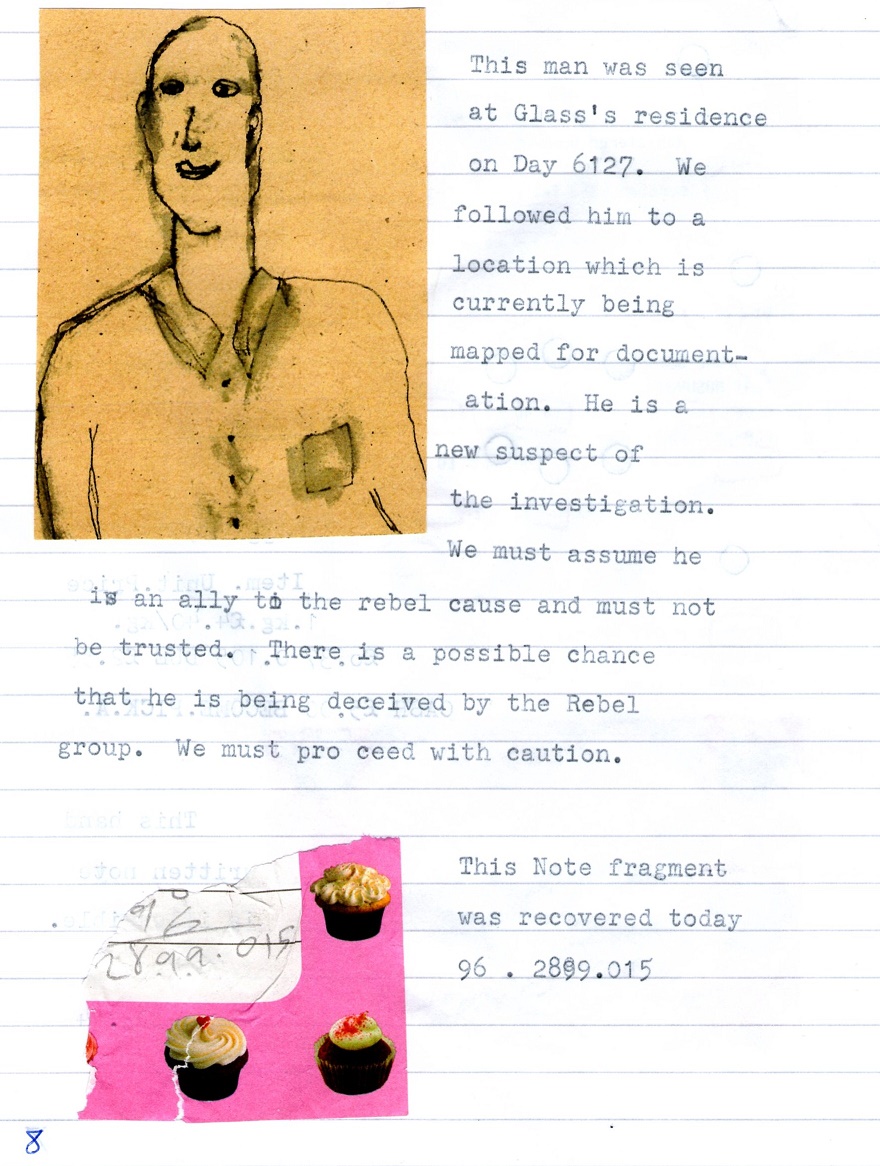 This man was seen
at Glass's residence
on Day 6127. We
followed him to a
location which is
currently being
mapped for document-
ation. He is a
new suspect of
the investigation.
We must assume he
is an ally to the rebel cause and must not
be trusted. There is a possible chance
that he is being deceived by the Rebel
group. We must pro ceed with caution.
96
2899.015
This Note fragment
was recovered today
96 . 2899.015
8